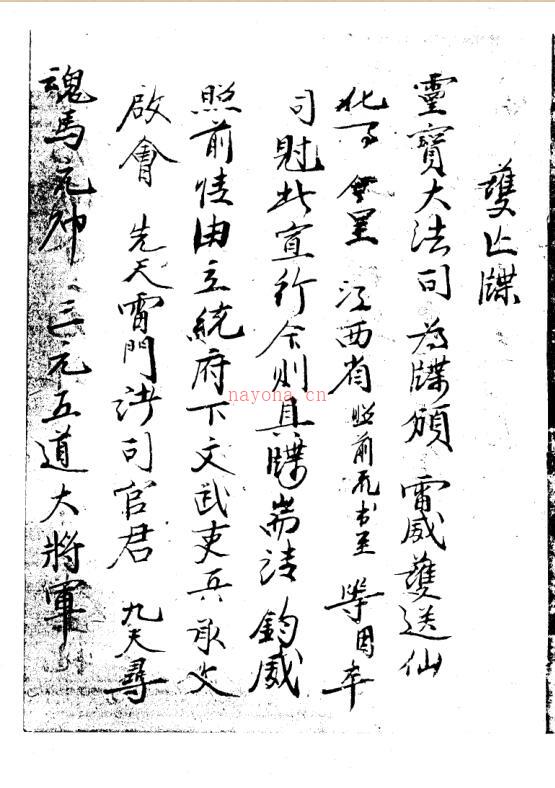 護亡牒
靈寶大法司 為牒頒 雷威護送仙
化一 江西省照前孔書至 等因奉
司尉此宣行今則具牒耑請 鈞威
照前情由立統府下文武吏兵承文
啟會 先天雷門法司官君 九天尋
魂馬元帥 三元五道大將軍
nayona.cn